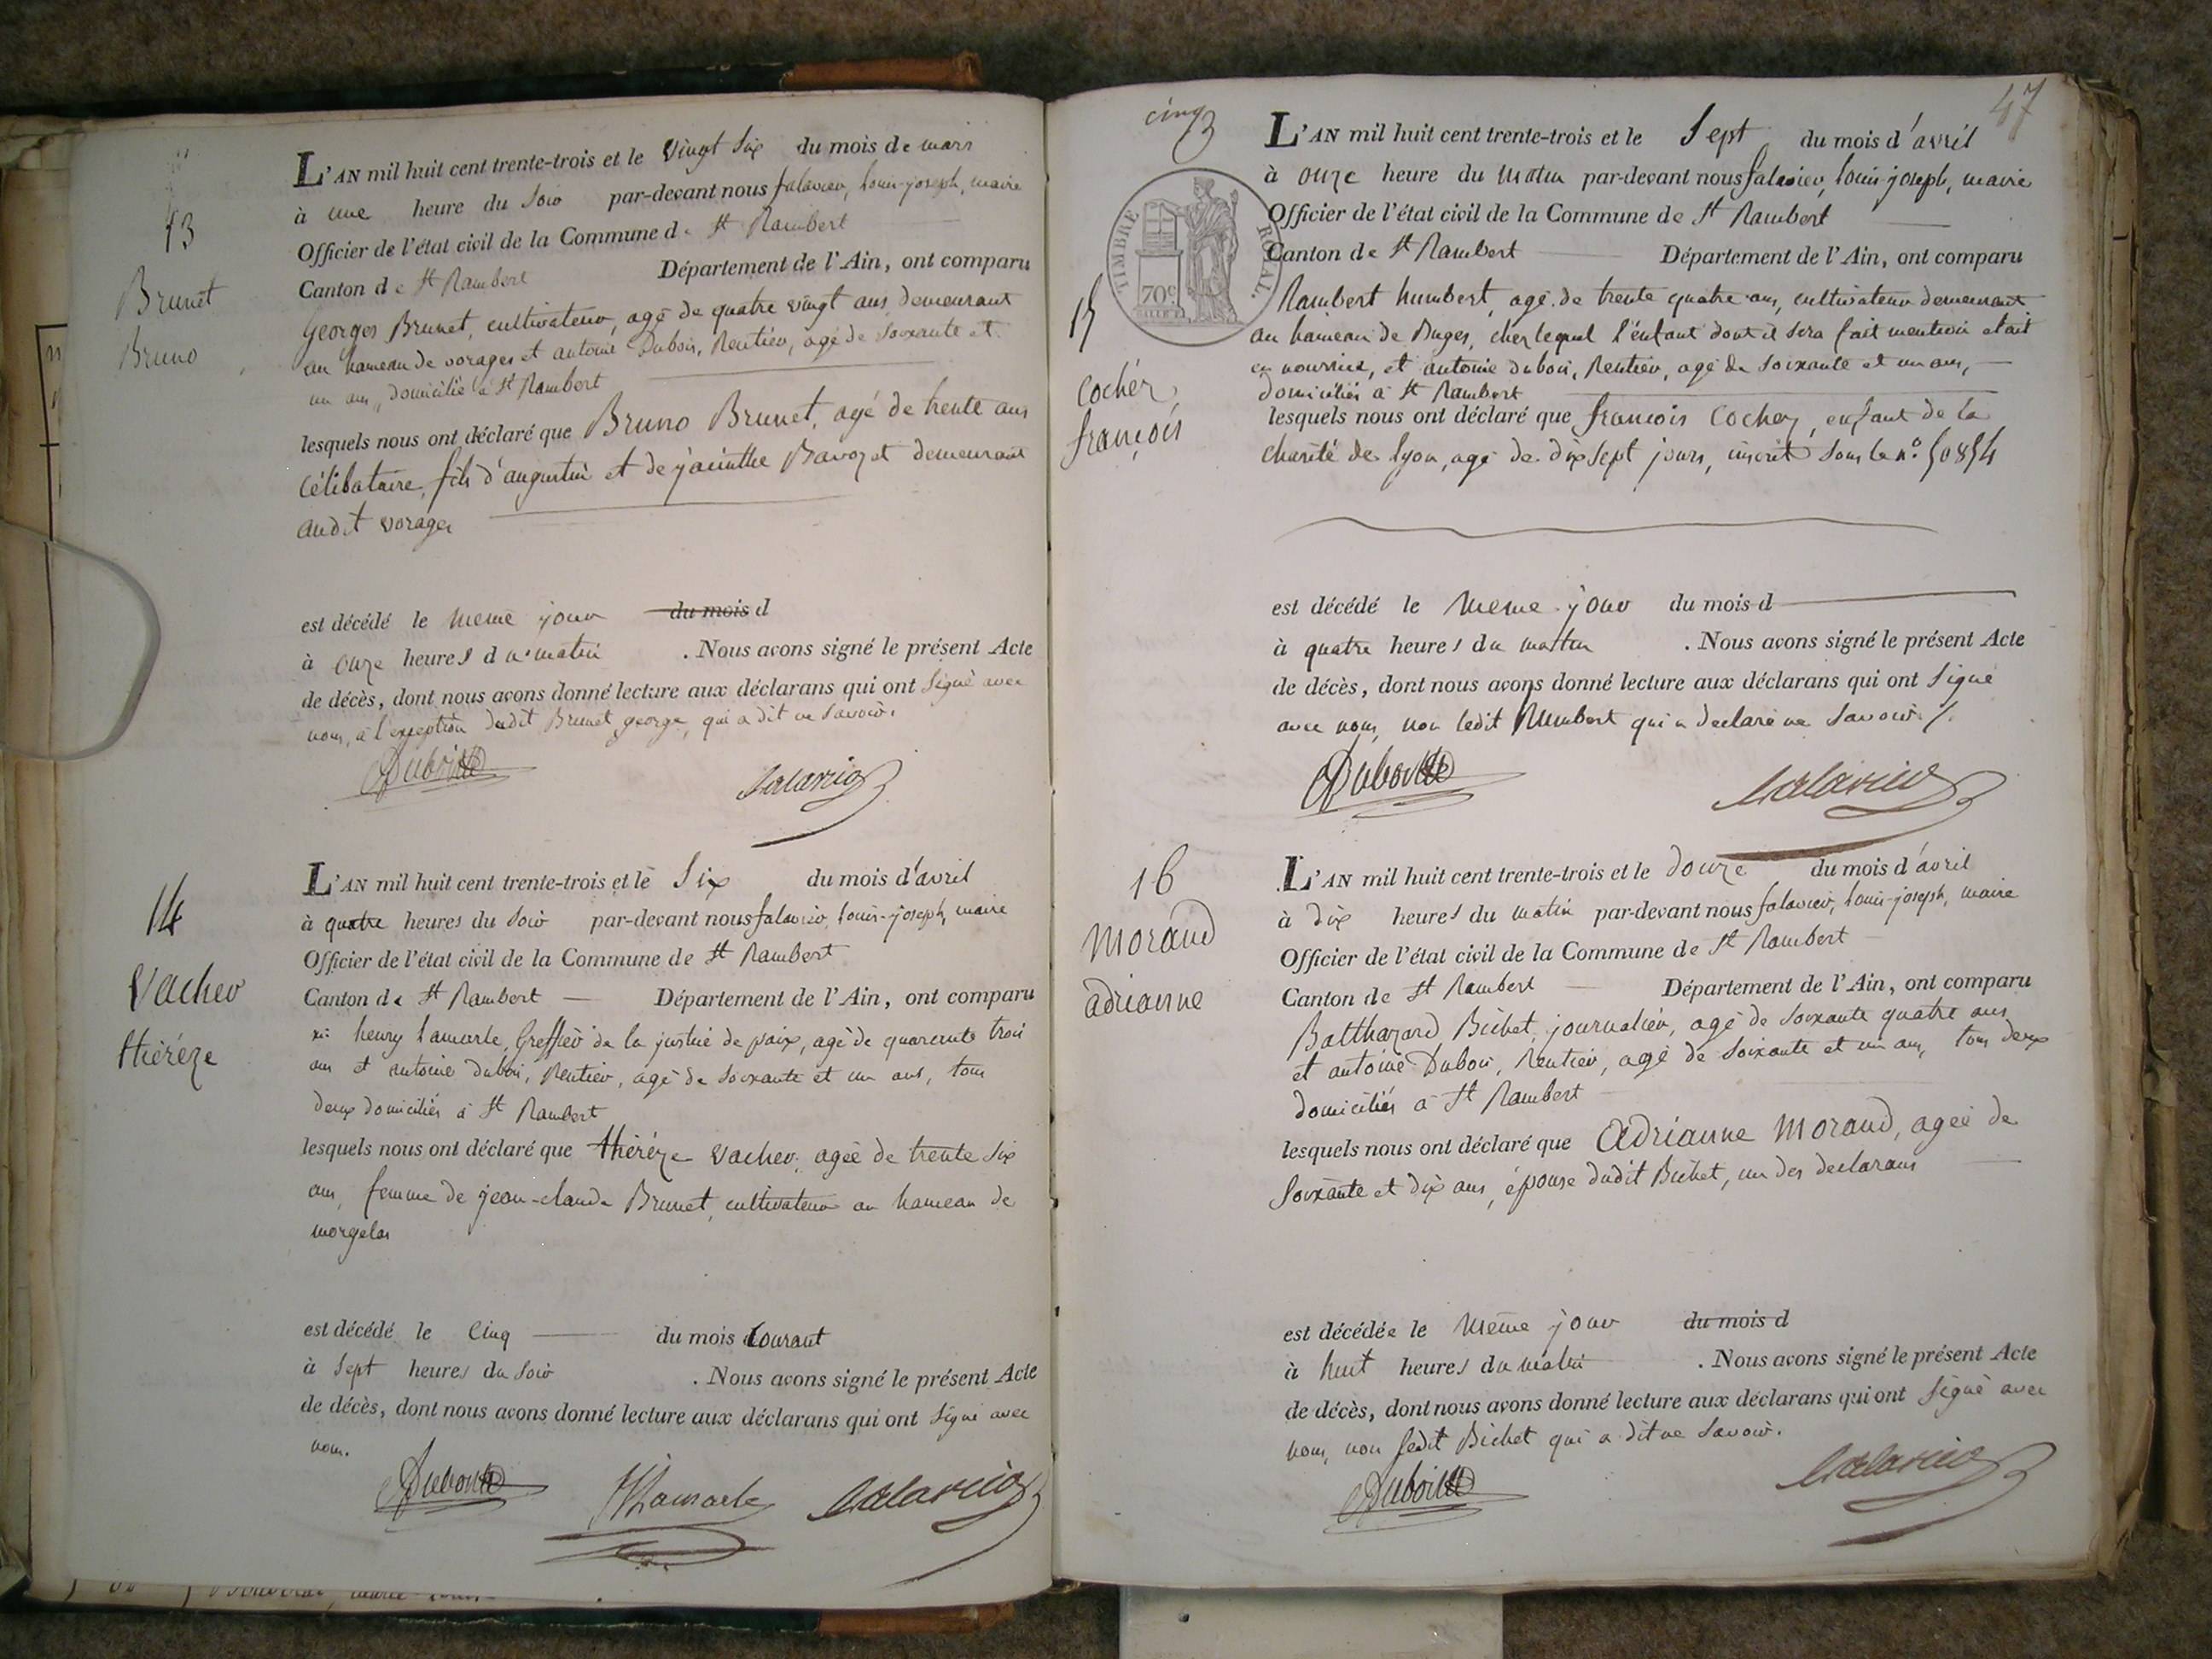 13
Brunet
Bruno
L'AN mil huit cent trente-trois et le vingt six du mois de mars
à une heure du soir par-devant nous falavier, louis-joseph, maire
Officier de l'état civil de la Commune de St Rambert
Canton de St Rambert Département de l'Ain, ont comparu
Georges Brunet, cultivateur, agé de quatre vingt ans, demeurant
au hameau de vorages et antoine Dubois, Rentier, agé de soixante et
un ans, domiciliés à St Rambert
lesquels nous ont déclaré que Bruno Brunet, agé de trente ans
célibataire, fils d'augustin et de jacinthe Bavozet demeurant
audit vorages
est décédé le meme jour du mois d
à onze heures du matin . Nous avons signé le présent Acte
de décès, dont nous avons donné lecture aux déclarans qui ont signé avec
nous, à l'exception dudit Brunet george, qui a dit ne savoir.
Dubois
falavier
14
Vacher
thérèze
L'AN mil huit cent trente-trois et le six du mois d'avril
à quatre heures du soir par-devant nous falavier, louis-joseph, maire
Officier de l'état civil de la Commune de St Rambert
Canton de St Rambert Département de l'Ain, ont comparu
henry Lamarle, Greffier de la justice de paix, agé de quarante trois
ans et antoine dubois, Rentier, agé de soixante et un ans, tous
deux domiciliés à St Rambert
lesquels nous ont déclaré que thérèze vacher, agée de trente six
ans, femme de jean-claude Brunet, cultivateur au hameau de
morgelas
est décédé le cinq du mois courant
à sept heures du soir . Nous avons signé le présent Acte
de décès, dont nous avons donné lecture aux déclarans qui ont signé avec
nous.
Dubois
Lamarle
falavier
47
cinq
TIMBRE ROYAL.
70c
15
Cochér
françois
L'AN mil huit cent trente-trois et le sept du mois d'avril
à onze heure du matin par-devant nous falavier, louis-joseph, maire
Officier de l'état civil de la Commune de St Rambert
Canton de St Rambert Département de l'Ain, ont comparu
Rambert humbert, agé de trente quatre ans, cultivateur demeurant
au hameau de Buges, chez lequel l'enfant dont il sera fait mention etait
en nourrice, et antoine dubois, Rentier, agé de soixante et un ans,
domiciliés à St Rambert
lesquels nous ont déclaré que françois Cocher, enfant de la
charité de lyon, agé de dix sept jours, inscrit sous le n° 50854
est décédé le meme jour du mois d
à quatre heures du matin . Nous avons signé le présent Acte
de décès, dont nous avons donné lecture aux déclarans qui ont signé
avec nous, non ledit humbert qui a declaré ne savoir
Dubois
falavier
16
Morand
adrianne
L'AN mil huit cent trente-trois et le douze du mois d'avril
à dix heures du matin par-devant nous falavier, louis-joseph, maire
Officier de l'état civil de la Commune de St Rambert
Canton de St Rambert Département de l'Ain, ont comparu
Balthazard Bichet, journalier, agé de soixante quatre ans
et antoine Dubois, Rentier, agé de soixante et un ans, tous deux
domiciliés à St Rambert
lesquels nous ont déclaré que adrianne Morand, agée de
soixante et dix ans, épouse dudit Bichet, un des declarans
est décédée le même jour du mois d
à huit heures du matin . Nous avons signé le présent Acte
de décès, dont nous avons donné lecture aux déclarans qui ont signé avec
nous, non ledit Bichet qui a dit ne savoir.
Dubois
falavier